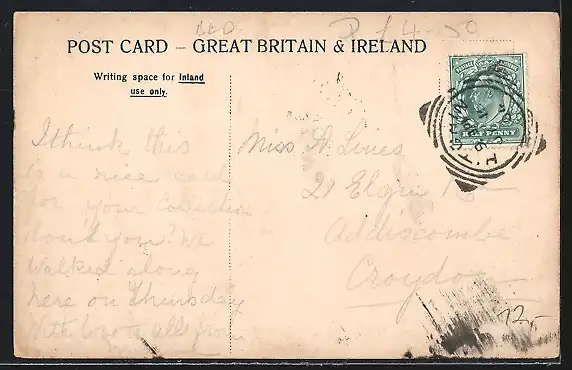 BED.
£4-50
POST CARD – GREAT BRITAIN & IRELAND
Writing space for Inland
use only.
HALF PENNY
I think this
is a nice card
for your Collection
dont you? We
walked along
here on Thursday
With love & all from
Miss H. Lines
21 Elgin Rd
Addiscombe
Croydon
12,-